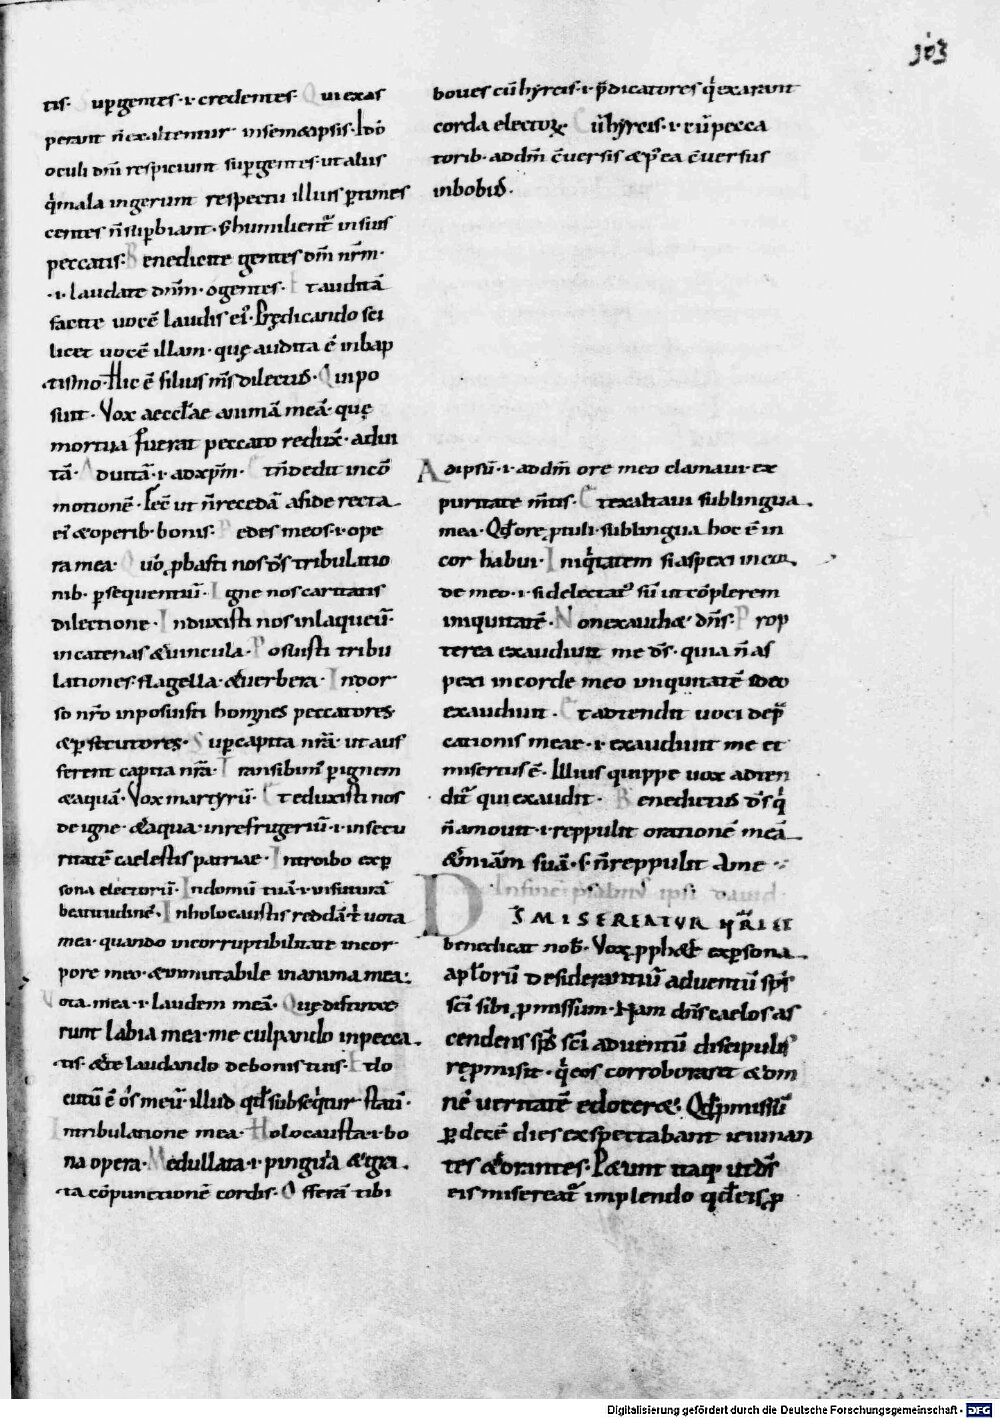 103
tis. Sup gentes .i. credentes. Qui exas
perant n̄ exaltentur in semetipsis. Ideo
oculi dn̄i respiciunt sup gentes. ut alius
q̇ mala ingerunt respectu illius ꝑtimes
centes n̄ suꝑbiant. s; humilient᷑ in suis
peccatis. Benedicite gentes dm̄ nr̄m.
.i. laudate dnm̄. o gentes. Et auditā
facite uocē laudis ei᷒. Prędicando sci
licet uocē illam. quę audita ē in bap
tismo. Hic ē filius m̄s dilectus. Qui po
suit. Vox aeccl̄ae animā meā. quę
mortua fuerat peccato redux̄. ad ui
tā. Ad uitā .i. ad xp̄m. Et n̄ dedit in cō
motionē. Fec̄ ut n̄ recedā a fide recta
ei᷒ & operib. bonis. Pedes meos .i. ope
ra mea. Quō ꝓbasti nos d̄s tribulatio
nib. ꝑsequentiū. Igne nos caritatis
dilectione. Induxisti nos in laqueū.
in catenas & uincula. Posuisti tribu
lationes. flagella. & uerbera. In dor
so nr̄o inposuisti homines peccatores
& ꝑsecutores. Sup capita nr̄a. ut aus
ferent capita nr̄a. Transibim᷒ ꝑ ignem
& aquā. Vox martyrū. Et eduxisti nos
de igne. & aqua. in refrigeriū .i. in secu
ritatē caelestis patriae. Introibo ex ꝑ
sona electorū. In domū tuā .i. uisiturā
beatitudinē. In holocaustis reddā t̄ uota
mea. quando incorruptibilitate in cor
pore meo. & inmutabile in anima mea.
Vota mea .i. laudem meā. Quę distinxe
runt labia mea. me culpando in pecca
tis. & te laudando de bonis tuis. Et lo
cutū ē ós meū. illud qd̄ subseq̇tur statī.
In tribulatione mea. Holocausta .i. bo
na opera. Medullata .i. pinguia & gra
ta cōpunctionē cordis. Offerā tibi
boues cū hyrcis .i. p̄dicatores q̇ exarant
corda electoꝝ. Cū hyrcis .i. cū pecca
torib. ad dm̄ c̄uersis & p᷒ea c̄uersus
in bobus.
Ad ipsū .i. ad dm̄ ore meo clamaui. ex
puritate m̄tis. Et exaltaui sub lingua
mea. Qd̄ ore ꝓtuli. sub lingua hoc ē in
cor habui. Iniq̇tatem si aspexi in cor
de meo .i. si delectat᷒ sū ut cōplerem
iniquitatē. Non exaudi& dn̄s. Prop
terea exaudiuit me d̄s. quia n̄ as
pexi in corde meo iniquitatē ideo
exaudiuit. Et adtendit uoci dep̄
cationis meae .i. exaudiuit me et
misertus ē. Illius quippe uox adten
dit᷑ qui exaudit. Benedictus d̄s q̇
n̄ amouit .i. reppulit orationē meā
& m̄iam suā. s. n̄ reppulit a me
In finē psalmus ipsi dauid.
DS MISEREATUR NRI ET
benedicat nob. Vox ꝓph&ę ex ꝑsona
aplorū desiderantiū aduentū sp̄s
sc̄i sibi ꝓmissum. Nam dn̄s caelos as
cendens sp̄s sc̄i aduentū discipulis
rep̄misit. q̇ eos corroborar& & om
nē ueritatē edocer&. Qd̄ ꝓmissū
ꝑ decē dies exspectabant ieiunan
tes & orantes. P&unt itaq; ut d̄s
eis misereat᷑ implendo qd̄ eis ꝓ
Digitalisierung gefördert durch die Deutsche Forschungsgemeinschaft - DFG